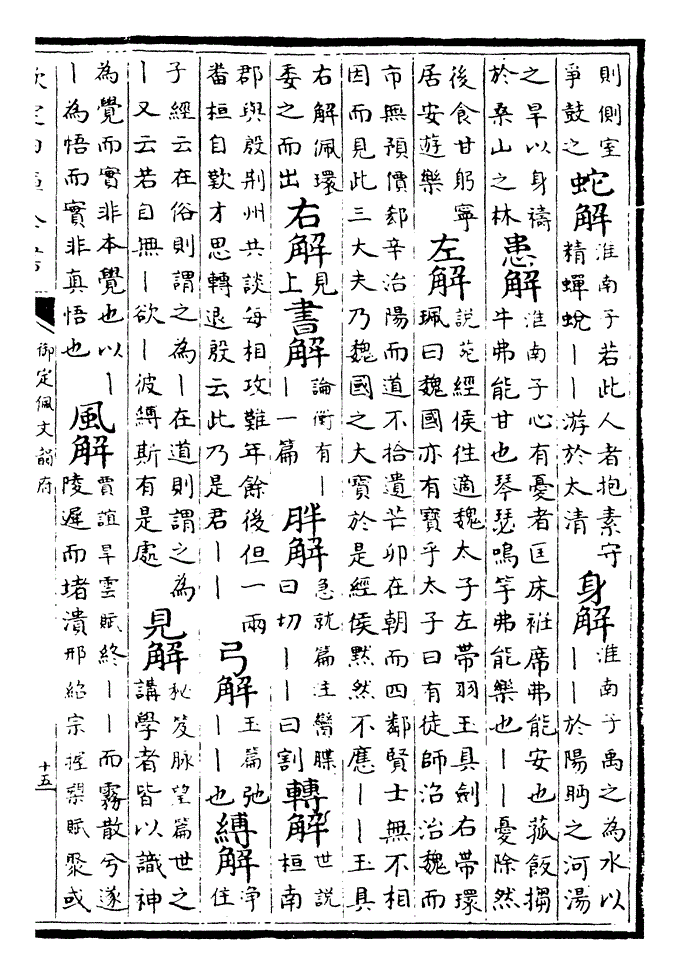 則側室爭鼓之 蛇解 淮南子若此人者抱素守精蟬蛻||游於太清 身解 淮南子禹之為水以||於陽盱之河湯
之旱以身禱於桑山之林 患解 淮南子心有憂者匡床袵席弗能安也菰飯犓牛弗能甘也琴瑟鳴竽弗能樂也||憂除然
後食甘躬寧居安遊樂 左解 說苑經侯往適魏太子左帶羽玉具劍右帶環珮曰魏國亦有寶乎太子曰有徒師沼治魏而
市無預價郄辛治陽而道不拾遺芒卯在朝而四鄰賢士無不相因而見此三大夫乃魏國之大寶於是經侯默然不應||玉具
右解佩環委之而出 右解 見上 書解 論衡有||一篇 胖解 急就篇注臠牒曰切||曰割 轉解 世説桓南
郡與殷荆州共談每相攻難年餘後但一兩番桓自歎才思轉退殷云此乃是君|| 弓解 玉篇弛||也 縛解 淨住
子經云在俗則謂之為|在道則謂之為|又云若自無|欲|彼縛斯有是處 見解 秘笈脉望篇世之講學者皆以識神
為覺而實非本覺也以||為悟而實非真悟也 風解 賈誼旱雲賦終||而霧散兮遂陵遲而堵潰邢紹宗握槊賦聚或
欽定四庫全書 御定佩文韻府 十五